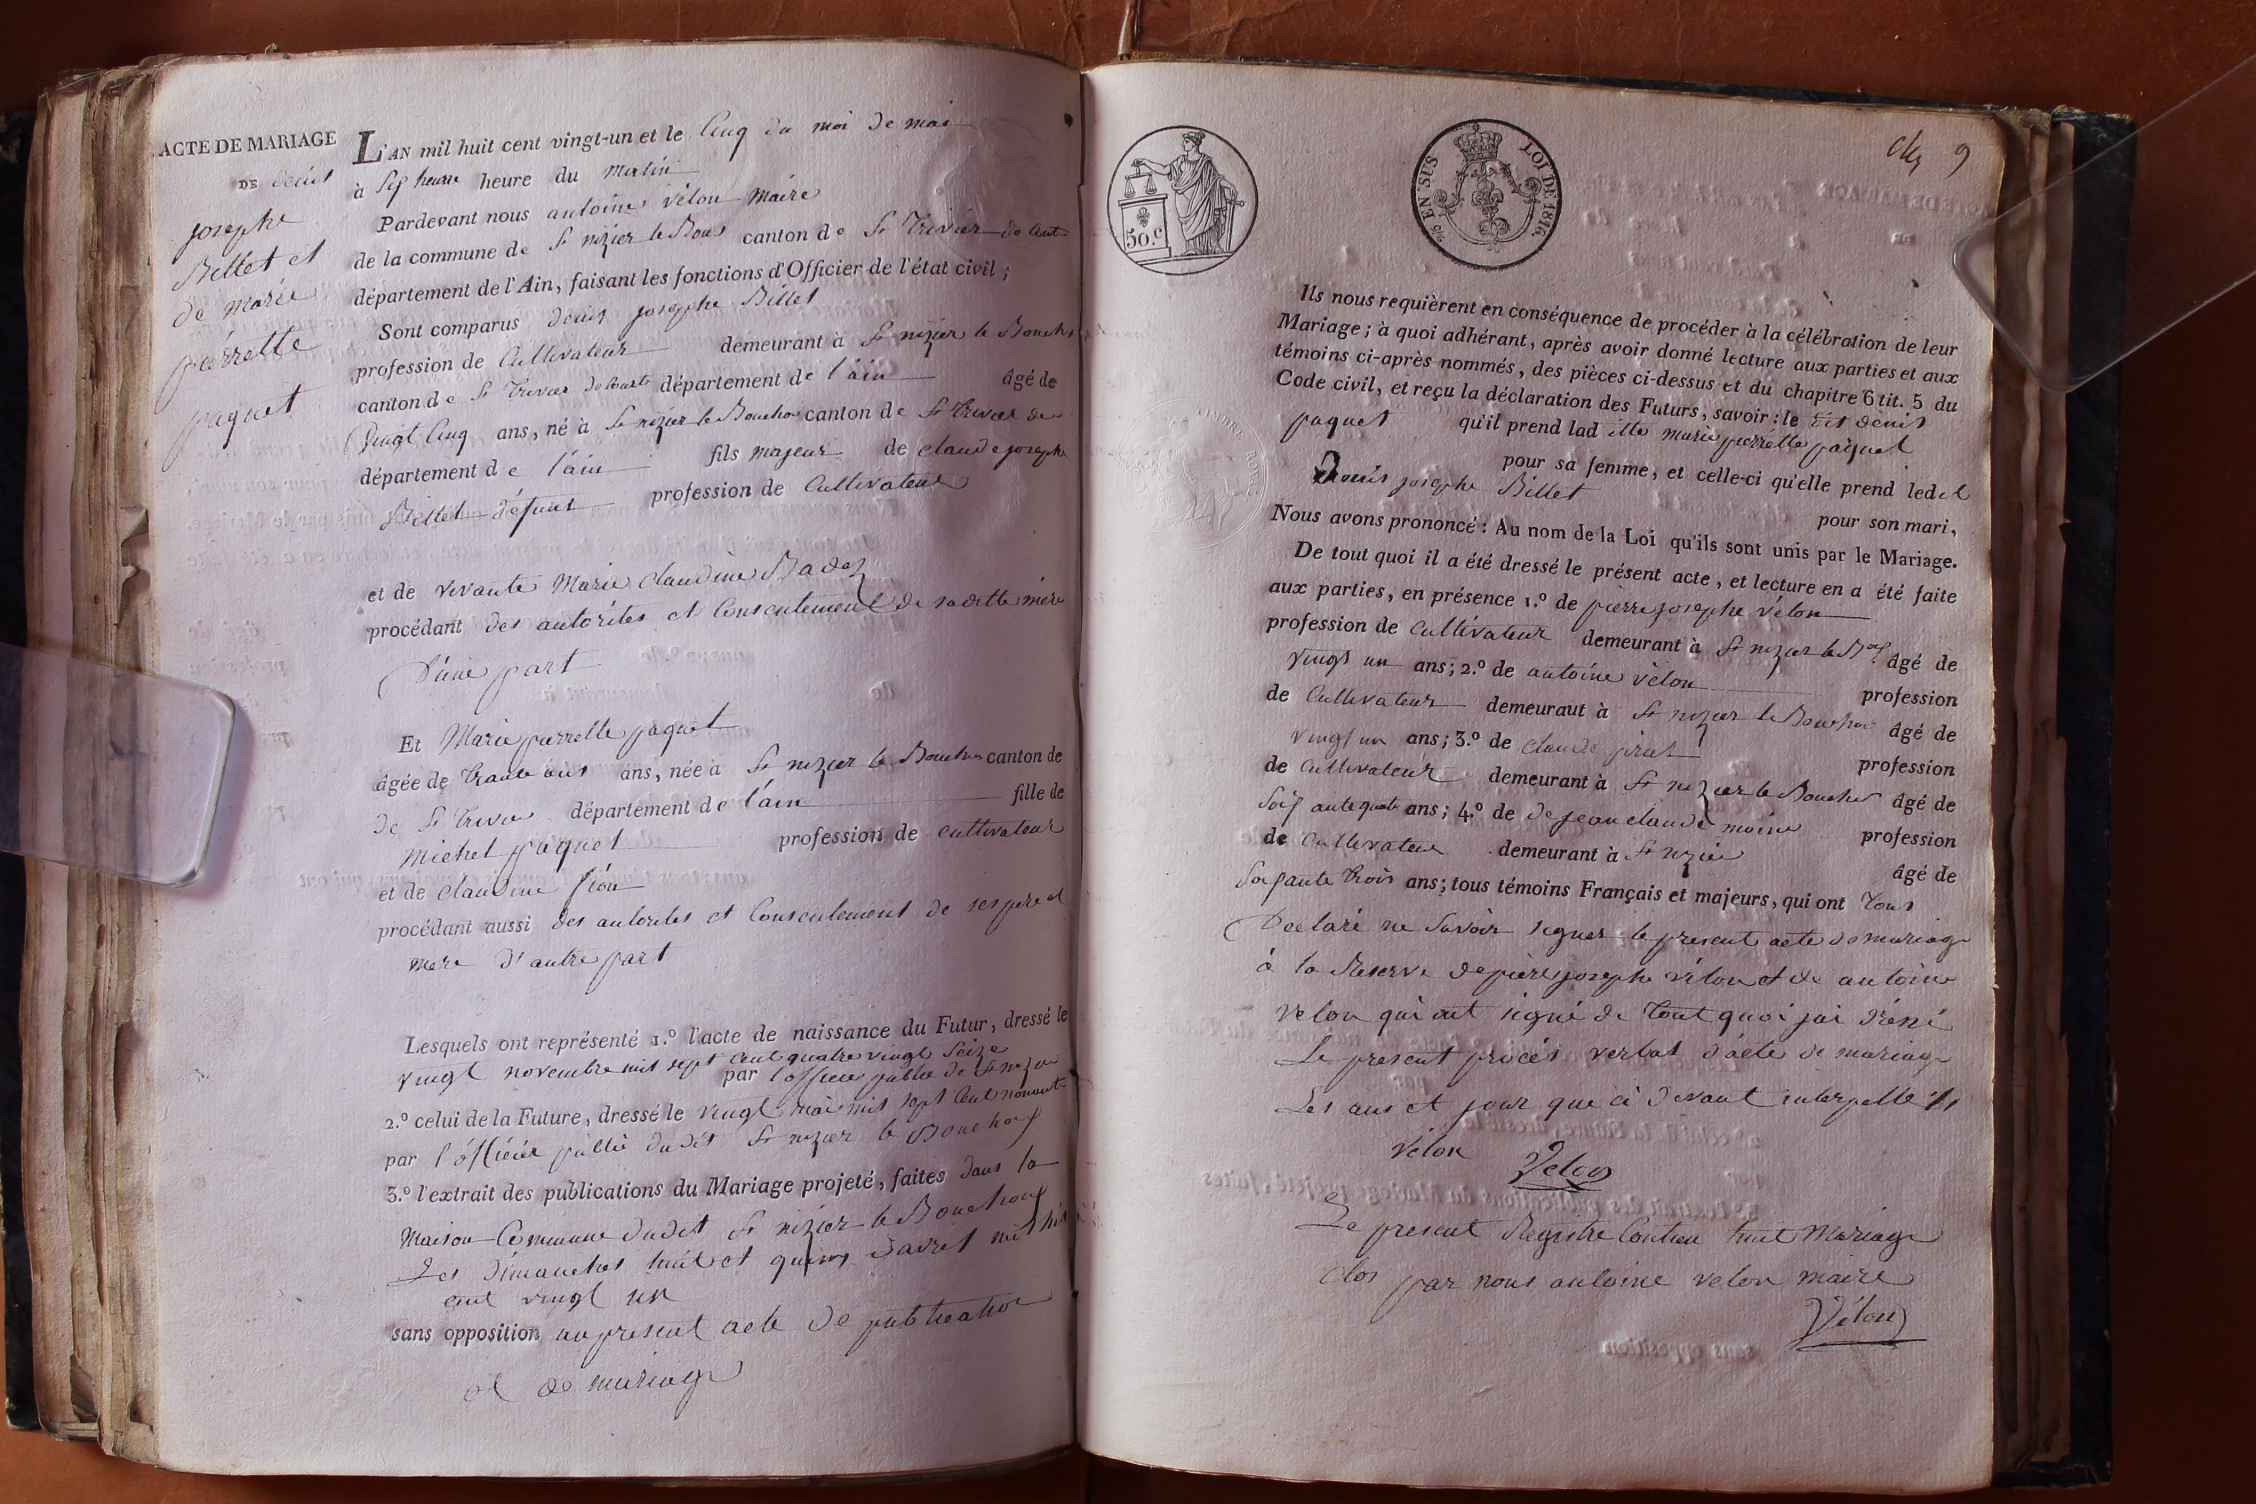 ACTE DE MARIAGE
DE denis
josephe
Billet et
de marie
pierrette
paquet
L'AN mil huit cent vingt-un et le Cinq du moi de mai
à Sep heure heure du matin
Pardevant nous antoine vélon maire
de la commune de St nizier le Bous canton de St Trivier de Curt
département de l'Ain, faisant les fonctions d'Officier de l'état civil ;
Sont comparus denis josephe Billet
profession de Cultivateur demeurant à St nizier le Bouchou
canton de St Trivier de Courte département de l'ain âgé de
Vingt Cinq ans, né à St nizier le Bouchou canton de St Trivier de
département de l'ain fils majeur de claude josephe
Billet défunt profession de Cultivateur
et de vivante Marie Claudine Badez
procédant des autorités et Consentement de sa ditte mère
D'une part
Et Marie pierrette paquet
âgée de trante ans ans, née à St nizier le Bouchou canton de
de St Trivier département de l'ain fille de
Michel paquet profession de cultivateur
et de claudine
procédant aussi des autorités et Consentement de ses pere et
mere d'autre part
Lesquels ont représenté 1.º l'acte de naissance du Futur, dressé le
vingt novembre mil sept Cent quatre vingt Seize
par l'officier public de St nizier
2.º celui de la Future, dressé le vingt mai mil sept Cent nonante
par l'officier public dudit St nizier le Bouchoux
3.º l'extrait des publications du Mariage projeté, faites dans la
Maison Commune dudit St nizier le Bouchoux
Les dimanches huit et quinze d'avril mil huit
cent vingt un
sans opposition au présent acte de publication
et de mariage
50.c
EN SUS LOI DE 1816.
9
Ils nous requièrent en conséquence de procéder à la célébration de leur
Mariage ; à quoi adhérant, après avoir donné lecture aux parties et aux
témoins ci-après nommés, des pièces ci-dessus et du chapitre 6 tit. 5 du
Code civil, et reçu la déclaration des Futurs, savoir : le dit denis
paquet qu'il prend lad itte marie pierrette paquet
pour sa femme, et celle-ci qu'elle prend ledit
Denis josephe Billet pour son mari,
Nous avons prononcé : Au nom de la Loi qu'ils sont unis par le Mariage.
De tout quoi il a été dressé le présent acte, et lecture en a été faite
aux parties, en présence 1.º de pierre josephe vélon
profession de Cultivateur demeurant à St nizier le Boux âgé de
vingt un ans ; 2.º de antoine vélon profession
de Cultivateur demeuraut à St nizier le Bouchou âgé de
vingt un ans ; 3.º de claude profession
de Cultivateur demeurant à St nizier le Bouchou âgé de
Soix ante quatre ans ; 4.º de de jean claude moine profession
de Cultivateur demeurant à St nizier âgé de
Soixante trois ans ; tous témoins Français et majeurs, qui ont tous
Declaré ne Savoir signer le present acte de mariage
à la Reserve de pierre josephe vélon et de antoine
velon qui ont signé de tout quoi jai dréssé
Le present procés verbal d'acte de mariage
Les ans et jour que ci devant interpellé
vélon Velon
Le present Registre Contien huit Mariage
clos par nous antoine velon maire
Vélon